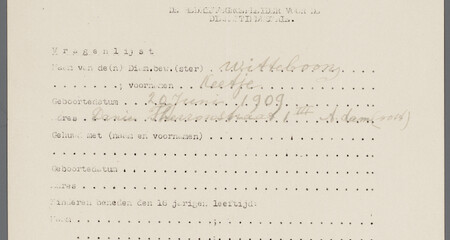 V r a g e n l i j s t
Naam van de(n) Diam.bew.(ster) Witteboom
; voornamen Reetje
Geboortedatum 20 Juni 1909
Adres 1 III A'dam
Gehuwd met (naam en voornamen)
Geboortedatum
Adres
Kinderen beneden den 16 jarigen leeftijd:
Naam ;